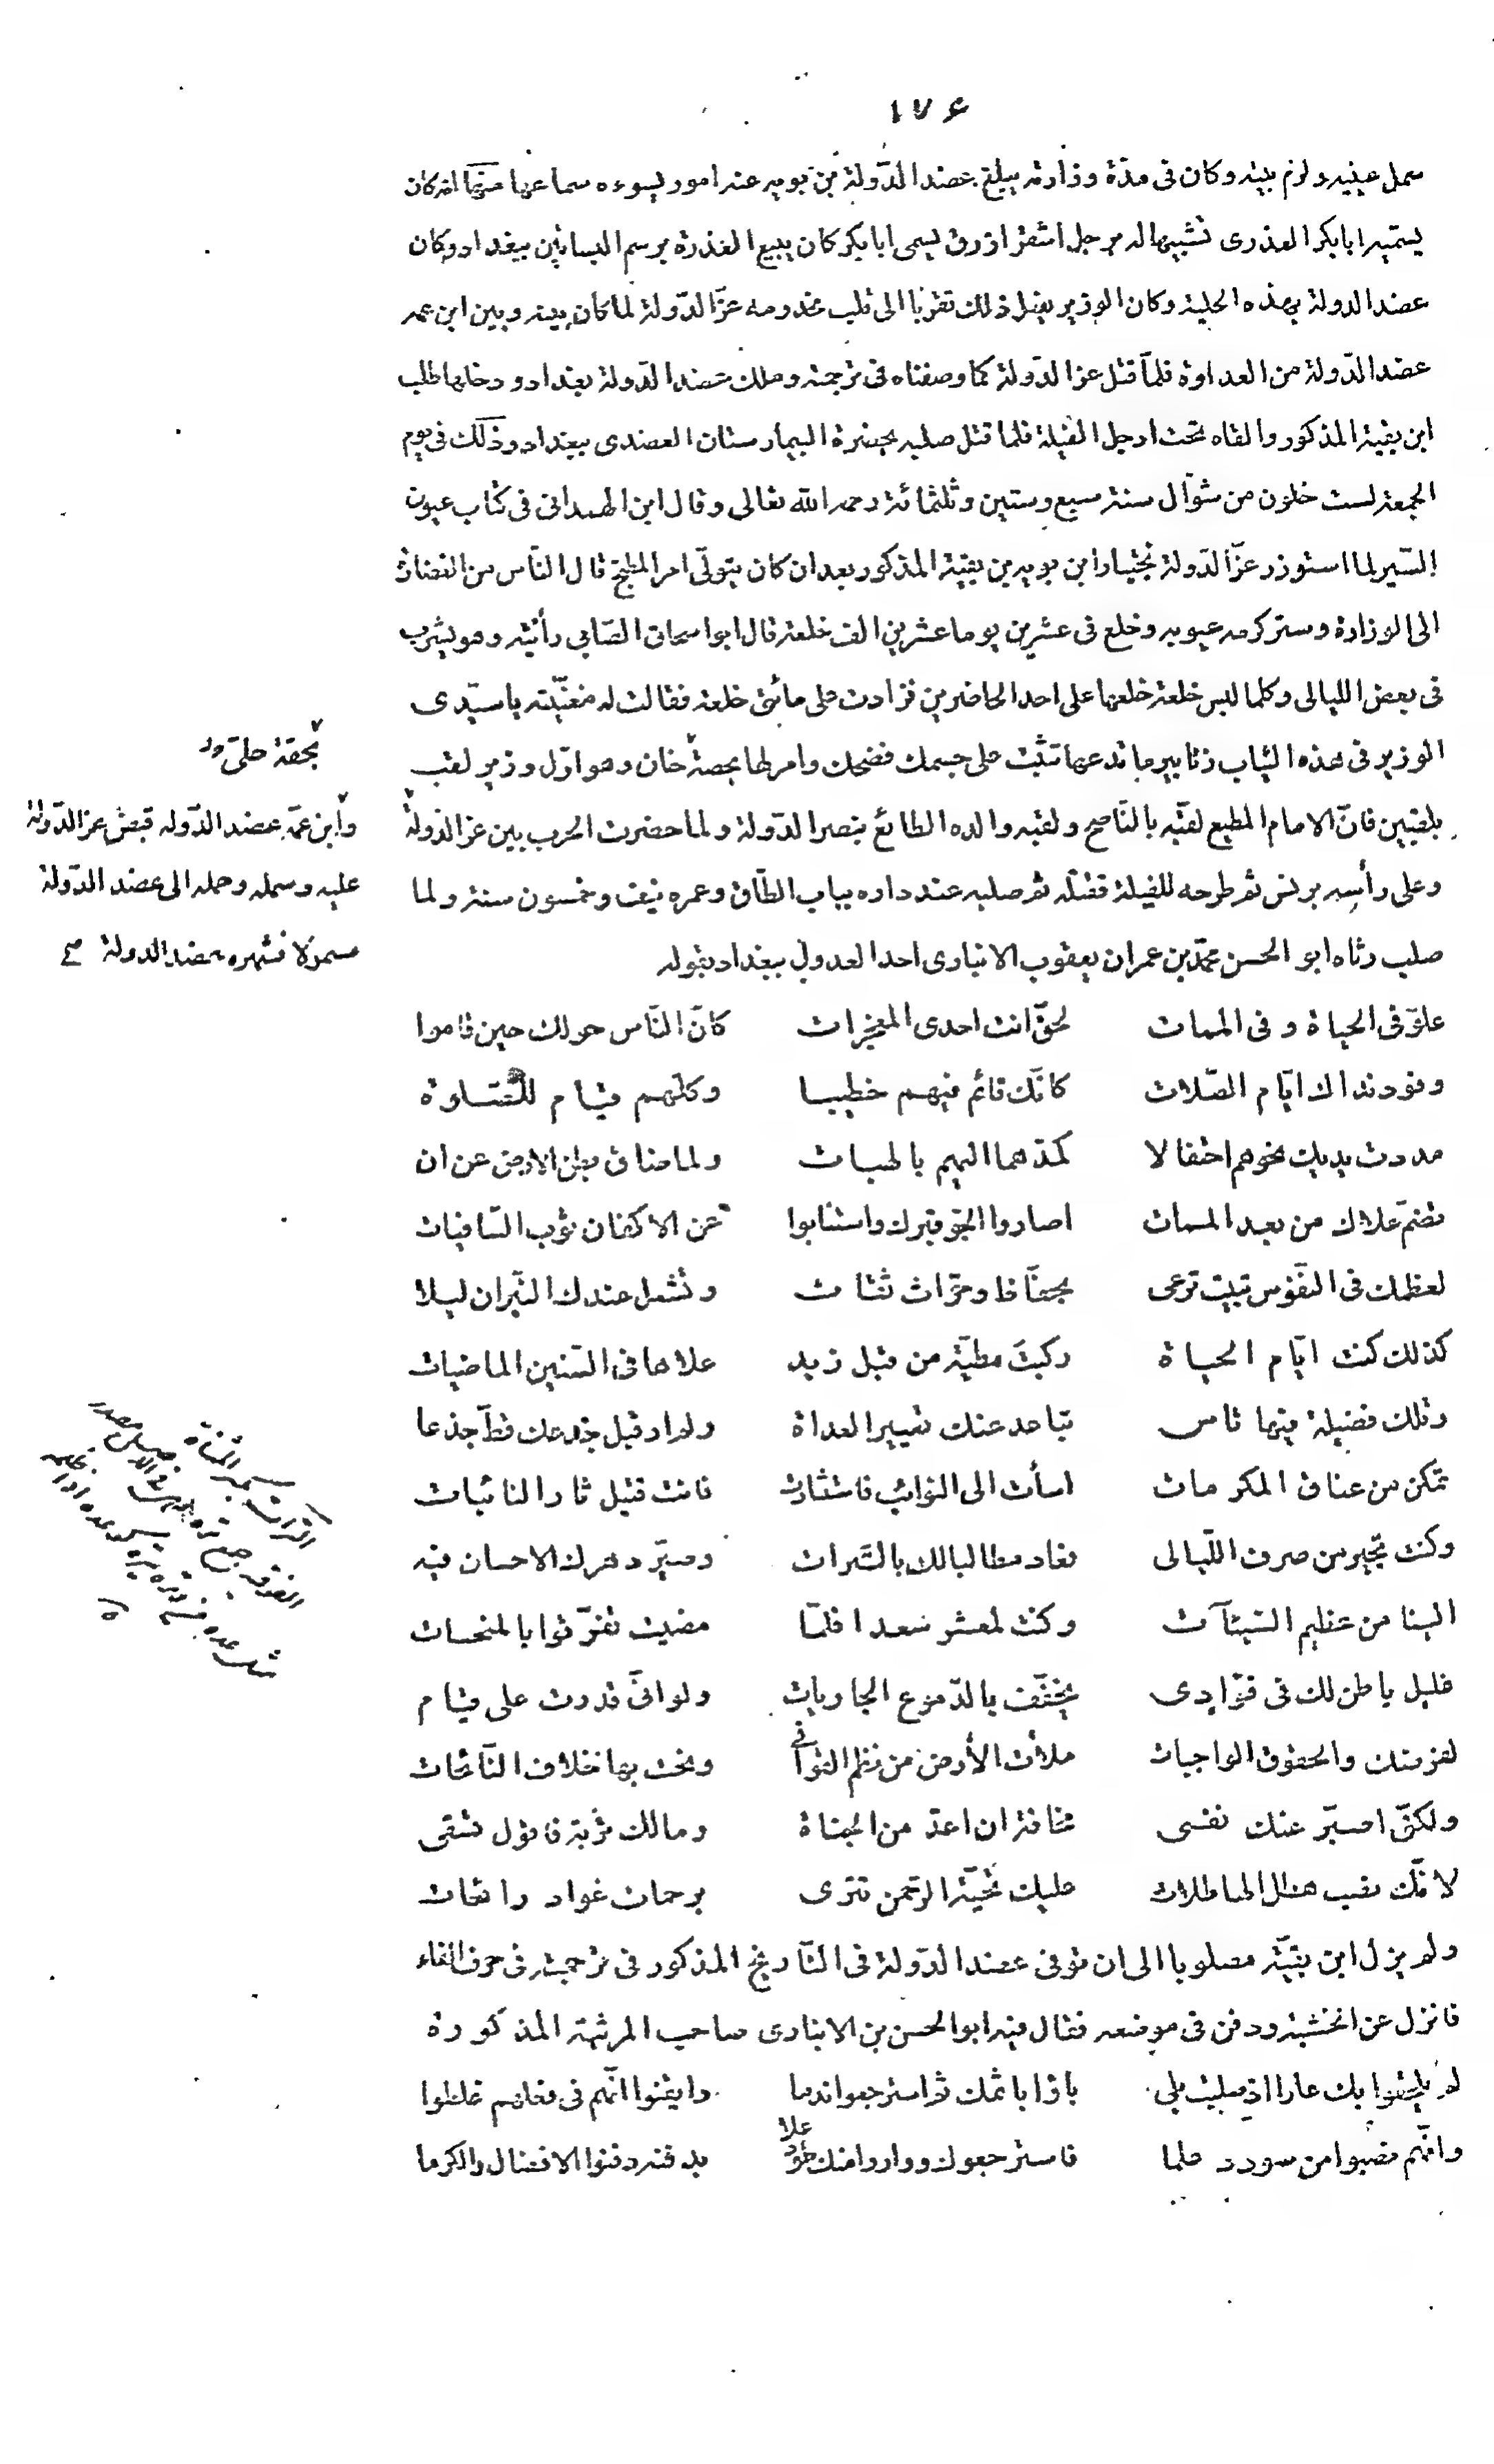 ١٧۶
سمل عينيه ولزم بيته وكان فى مدّة وزارته يبلغ عضد الدّولة بن بويه عنه امور يسوءه سماعها منها انه كان
يسمّيه ابا بكر العذرى تشبيها له برجل اشقر ازرق يسمى ابا بكر كان يبيع العذرة برسم البساتين ببغداد وكان
عضد الدولة بهذه الحلية وكان الوزير يفعل ذلك تقرّبا الى قلب مخدومه عزّ الدّولة لما كان بينه وبين ابن عمه
عضد الدّولة من العداوة فلمّا قتل عز الدّولة كما وصفناه فى ترجمته وملك عضد الدّولة بغداد ودخلها طلب
ابن بقية المذكور والقاه تحت ارجل الفيلة فلما قتل صلبه بحضرة البيمارستان العضدى ببغداد وذلك فى يوم
الجمعة لست خلون من شوّال سنة سبع وستين وثلثمائة رحمه الله تعالى وقال ابن الهمدانى فى كتاب عيون
السّير لما استوزر عزّ الدّولة بختيار ابن بويه بن بقيّة المذكور بعد ان كان يتولّى امر المطبخ قال النّاس من الغضات
الى الوزارة وستر كرمه عيوبه وخلع فى عشرين يوما عشرين الف خلعة قال ابو اسحاق الصّابى رأيته وهو يشرب
فى بعض الليالى وكلما لبس خلعة خلعها على احد الحاضرين فزادت على مائتى خلعة فقالت له مغنّيته يا سيّدى
الوزير فى هذه الثياب زنابير ما تدعها تثبت على جسمك فضحك وامر لها بحصة خان وهو اوّل وزير لقب
بلقبين فانّ الامام المطيع لقّبه بالنّاصح ولقبه والده الطائع بنصر الدّولة ولما حضرت الحرب بين عز الدّولة
وعلى رأسه برنس ثم طرحه للفيلة فقتلته ثم صلبه عند داره بباب الطّاق وعمره نيف وخمسون سنة ولما
صلب رثاه ابو الحسن محمّد بن عمران يعقوب الانبارى احد العدول ببغداد بقوله
بحقة حلىّ
وابن عمّه عضد الدّوله قبض عز الدّولة
عليه وسمله وحمله الى عضد الدّولة
مسمولا فشهره عضد الدولة صح
علوّ فى الحياة وفى الممات لحقّ انت احدى المعجزات كانّ النّاس حولك حين قاموا
وفود نداك ايّام الصّلات كانّك قائم فيهم خطيبا وكلّهم قيام للصّلوة
مددت يديك نحوهم احتفالا كمدّهما اليهم بالهبات ولما ضاق بطن الارض عن ان
تضمّ علاك من بعد الممات اصاروا الجوّ قبرك واستنابوا عن الاكفان ثوب السّافيات
لعظمك فى النّفوس تبيت ترعى بحفّاظ وحرّاث ثقات وتشعل عندك النّيران ليلا
كذلك كنت ايّام الحياة ركبت مطيّة من قبل زيد علاها فى السّنين الماضيات
وتلك فضيلة فيها تاس تباعد عنك تعيير العداة ولم ار قبل جذعك قطّ جذعا
تمكن من عناق المكرمات اسأت الى النوائب فاستثارت فانت قتيل ثار النائبات
وكنت تجير من صرف اللّيالى فعاد مطالبا لك بالتّرات وصيّر دهرك الاحسان فيه
الينا من عظيم السّيئآت وكنت لمعشر سعدا فلمّا مضيت تفرّقوا بالمنحسات
غليل باطن لك فى فؤادى يخفّف بالدّموع الجاريات ولو انّى قدرت على قيام
لفرضك والحقوق الواجبات ملأت الأرض من نظم القوافى ونحت بها خلاف النّائحات
ولكنّى اصبّر عنك نفسى مخافة ان اعدّ من الجناة ومالك تربة فاقول تسقى
لانّك نصب هطل الهاطلات عليك تحيّة الرّحمن تترى برحمات غواد رائحات
ولم يزل ابن بقيّة مصلوبا الى ان توفى عضد الدّولة فى التّاريخ المذكور فى ترجمته فى حرف الفاء
فانزل عن الخشبة ودفن فى موضعه فقال فيه ابو الحسن بن الانبارى صاحب المرثية المذكورة
لم يلحقوا بك عارا اذ صلبت بلى باؤا باثمك ثم استرجعوا ندما وايقنوا انّهم فى فعلهم غلطوا
وانّهم نصبوا من سودد علما فاسترجعوك وواروا منك طود علا بدفنه دفنوا الافضال والكرما